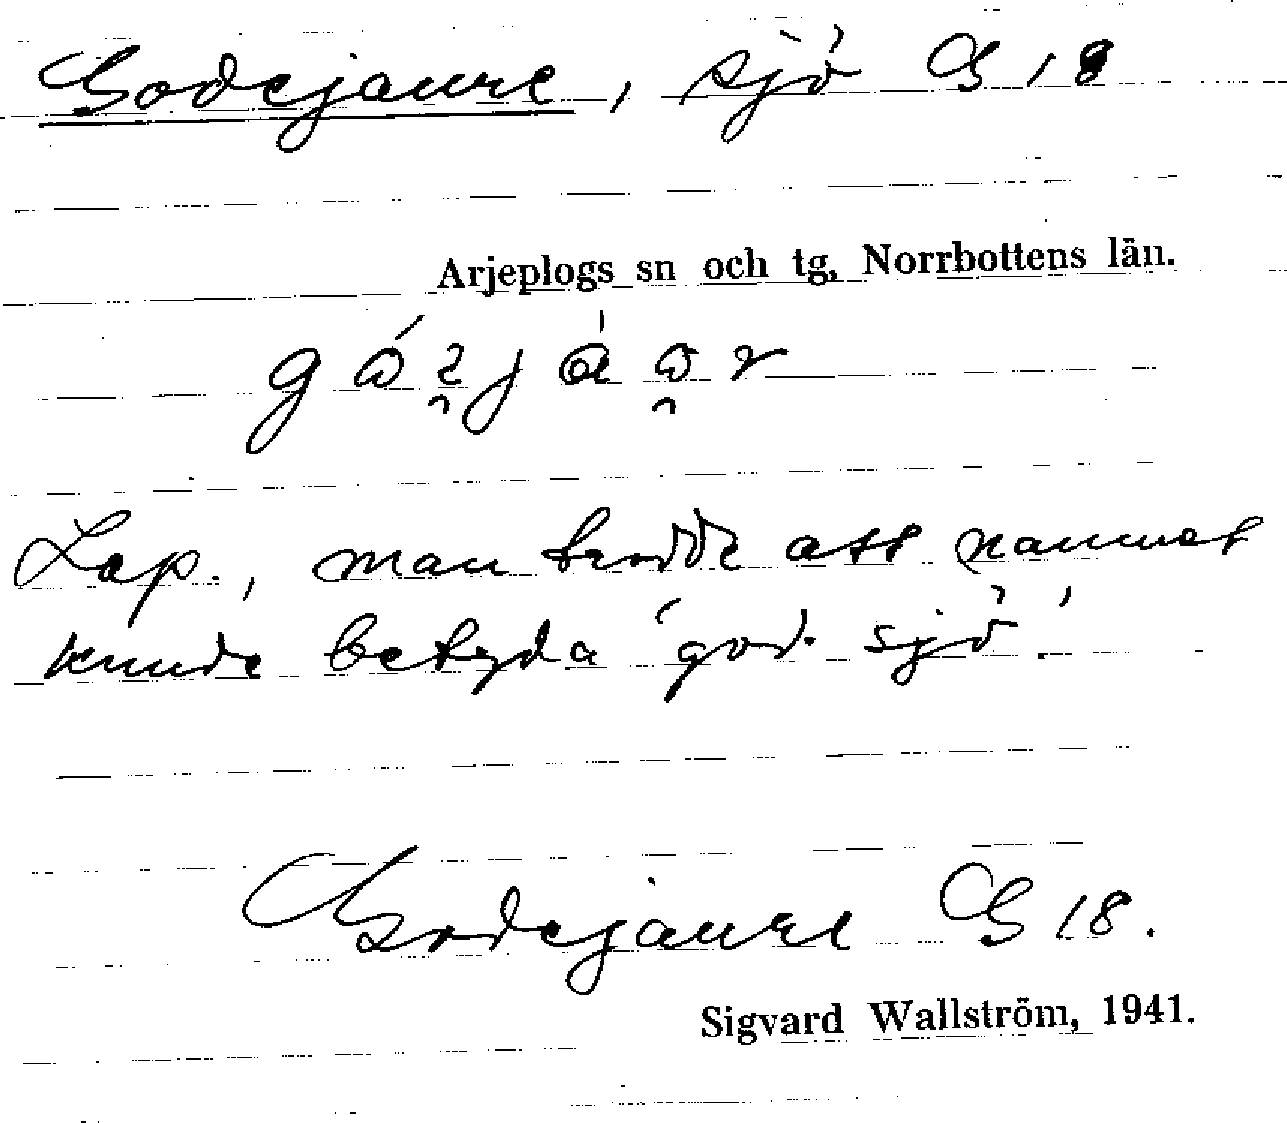 Godejaure, sjö G 18
Arjeplogs sn och tg, Norrbottens län.
Lap., man trodde att namnet
kunde betyda 'god sjö'.
Godejaure G 18.
Sigvard Wallström, 1941.